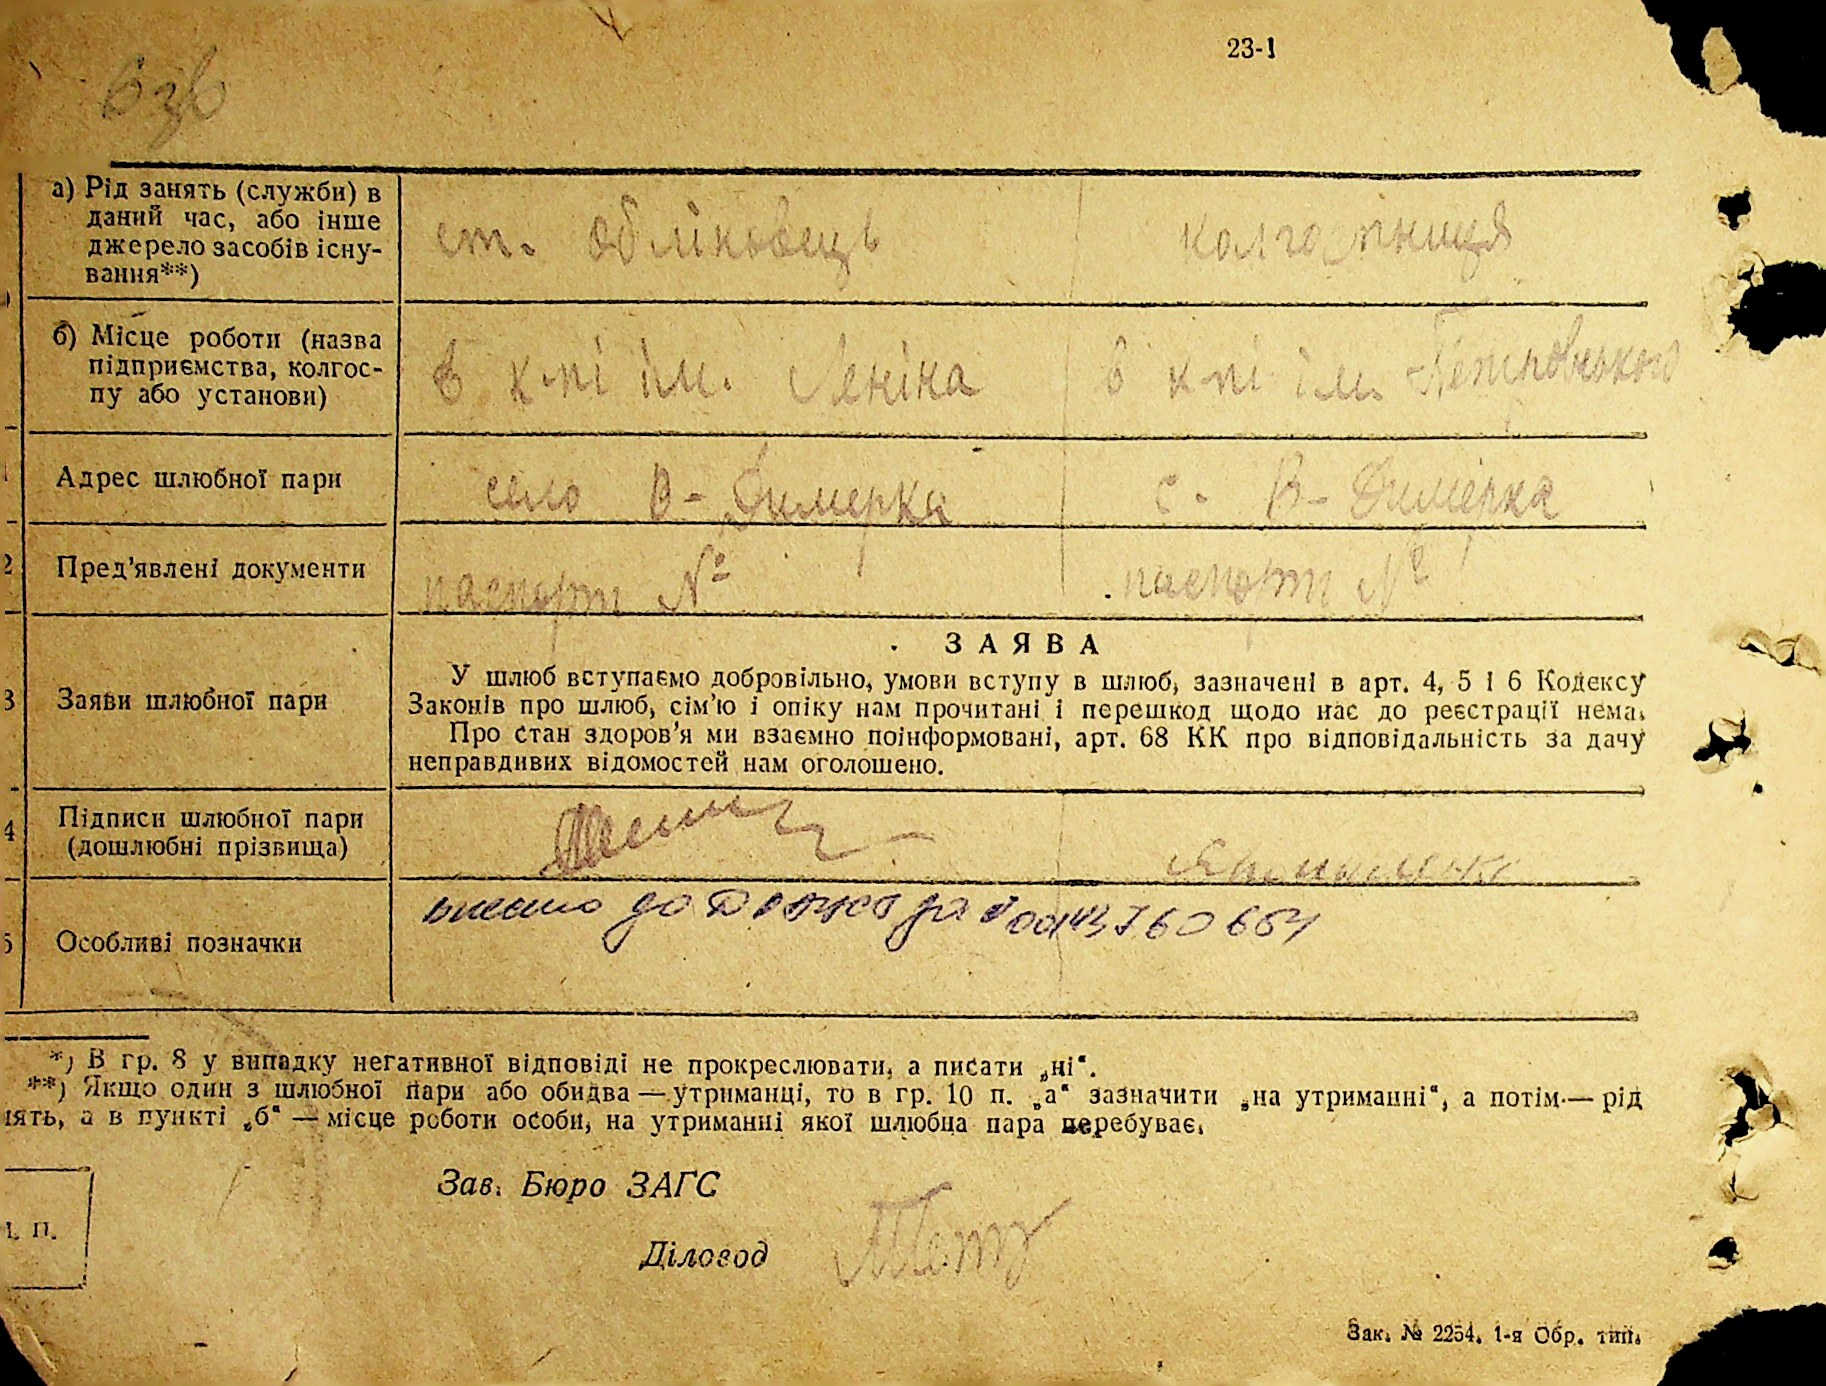 23-1
взв
а) Рід занять (служби) в
даний час, або інше
джерело засобів існу-
вання**)
ст. обліковець
колгоспниця
б) Місце роботи (назва
підприємства, колгос-
пу або установи)
в к-пі ім. Леніна
в к-пі ім. Петровського
Адрес шлюбної пари
село В-Димерка
с. В-Димерка
2 Пред'явлені документи
паспорт №
паспорт №
3 Заяви шлюбної пари
ЗАЯВА
У шлюб вступаємо добровільно, умови вступу в шлюб, зазначені в арт. 4, 5 і 6 Кодексу
Законів про шлюб, сім'ю і опіку нам прочитані і перешкод щодо нас до реєстрації нема.
Про стан здоров'я ми взаємно поінформовані, арт. 68 КК про відповідальність за дачу
неправдивих відомостей нам оголошено.
4 Підписи шлюбної пари
(дошлюбні прізвища)
5 Особливі позначки
внесено до Держреєстра 00143760654
*) В гр. 8 у випадку негативної відповіді не прокреслювати, а писати „ні“.
**) Якщо один з шлюбної пари або обидва — утриманці, то в гр. 10 п. „а“ зазначити „на утриманні“, а потім — рід
нять, а в пункті „б“ — місце роботи особи, на утриманні якої шлюбна пара перебуває.
Зав. Бюро ЗАГС
Діловод
М. П.
Зак. № 2254. 1-я Обр. тип.